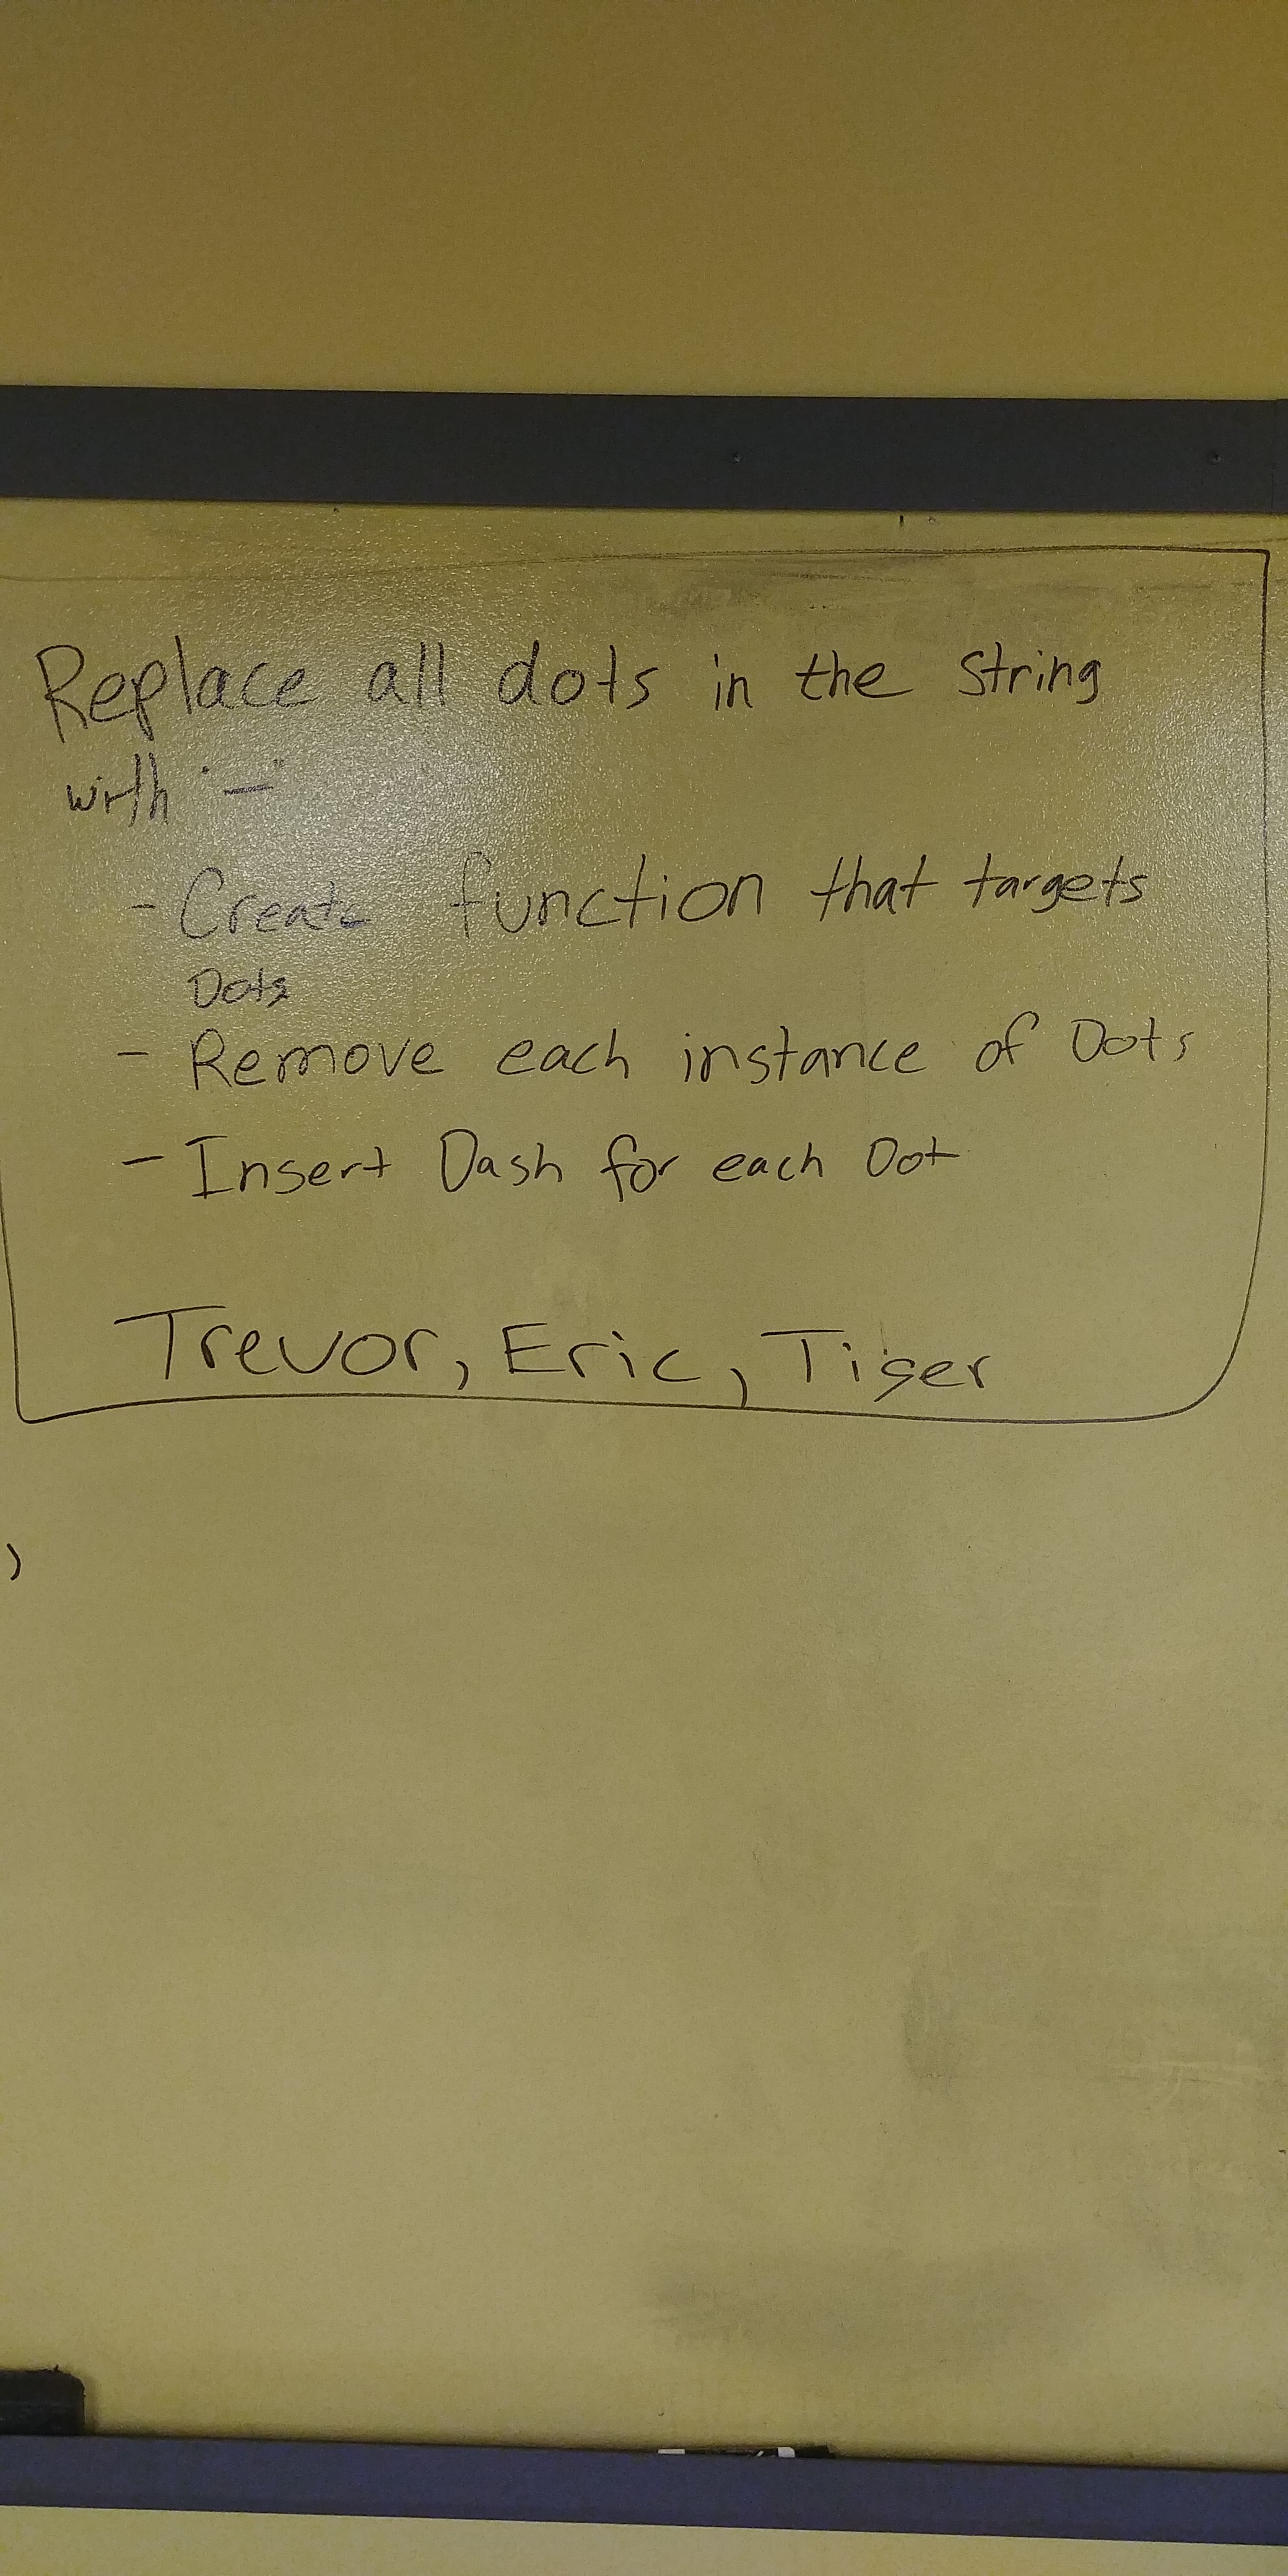 Replace all dots in the string
with "-"
- Create function that targets
Dots
- Remove each instance of Dots
- Insert Dash for each Dot
Trevor, Eric, Tiger
)